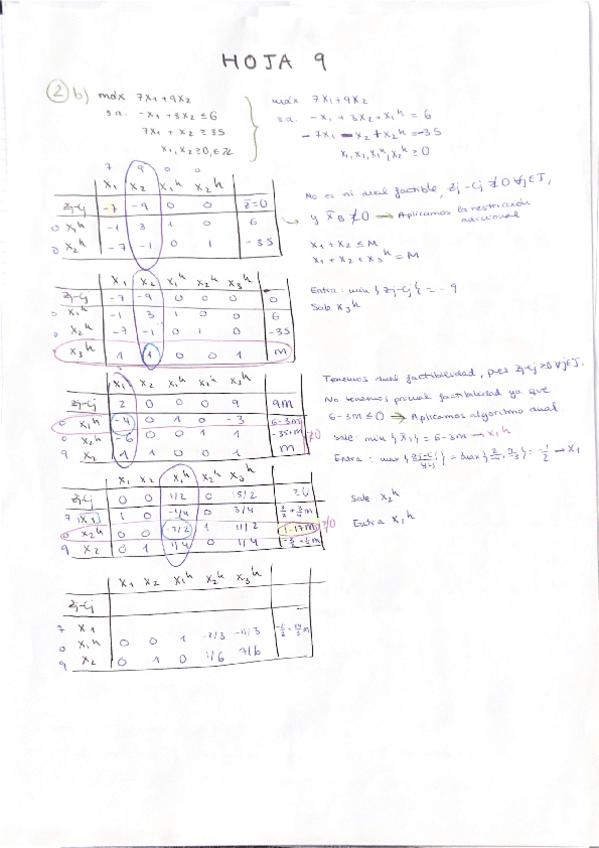 HOJA 9
2 b) máx 7x₁+9x₂
s.a. -x₁+3x₂ ≤ 6
7x₁ + x₂ ≥ 35
x₁, x₂ ≥ 0, ∈ ℤ
máx 7x₁+9x₂
s.a. -x₁ + 3x₂ + x₁ʰ = 6
-7x₁ - x₂ + x₂ʰ = -35
x₁, x₂, x₁ʰ, x₂ʰ ≥ 0
7 9 0 0
x₁ x₂ x₁ʰ x₂ʰ
zj-cj -7 -9 0 0 z̄=0
0 x₁ʰ -1 3 1 0 6
0 x₂ʰ -7 -1 0 1 -35
No es ni dual factible, zj-cj ≱ 0 ∀j∈J,
y x̄B ≱ 0 → Aplicamos la restricción
adicional
x₁ + x₂ ≤ M
x₁ + x₂ + x₃ʰ = M
x₁ x₂ x₁ʰ x₂ʰ x₃ʰ
zj-cj -7 -9 0 0 0 0
0 x₁ʰ -1 3 1 0 0 6
0 x₂ʰ -7 -1 0 1 0 -35
x₃ʰ 1 1 0 0 1 M
Entra: min { zj-cj } = -9
Sale x₃ʰ
x₁ x₂ x₁ʰ x₂ʰ x₃ʰ
zj-cj 2 0 0 0 9 9M
0 x₁ʰ -4 0 1 0 -3 6-3M
0 x₂ʰ -6 0 0 1 1 -35+M
9 x₂ 1 1 0 0 1 M
≱0
Tenemos dual factibilidad, pues zj-cj ≥ 0 ∀j∈J.
No tenemos primal factibilidad ya que
6-3M ≤ 0 → Aplicamos algoritmo dual
Sale: min { x̄i } = 6-3M → x₁ʰ
x₁ x₂ x₁ʰ x₂ʰ x₃ʰ
zj-cj 0 0 1/2 0 15/2
7 x₁ 1 0 -1/4 0 3/4
0 x₂ʰ 1 11/2 ≱0
9 x₂ 0 1 1/4 0 1/4
Sale x₂ʰ
Entra x₁ʰ
x₁ x₂ x₁ʰ x₂ʰ x₃ʰ
zj-cj
7 x₁
0 x₁ʰ 0 0 1 -2/3 -11/3
9 x₂ 0 1 0 1/6 7/6